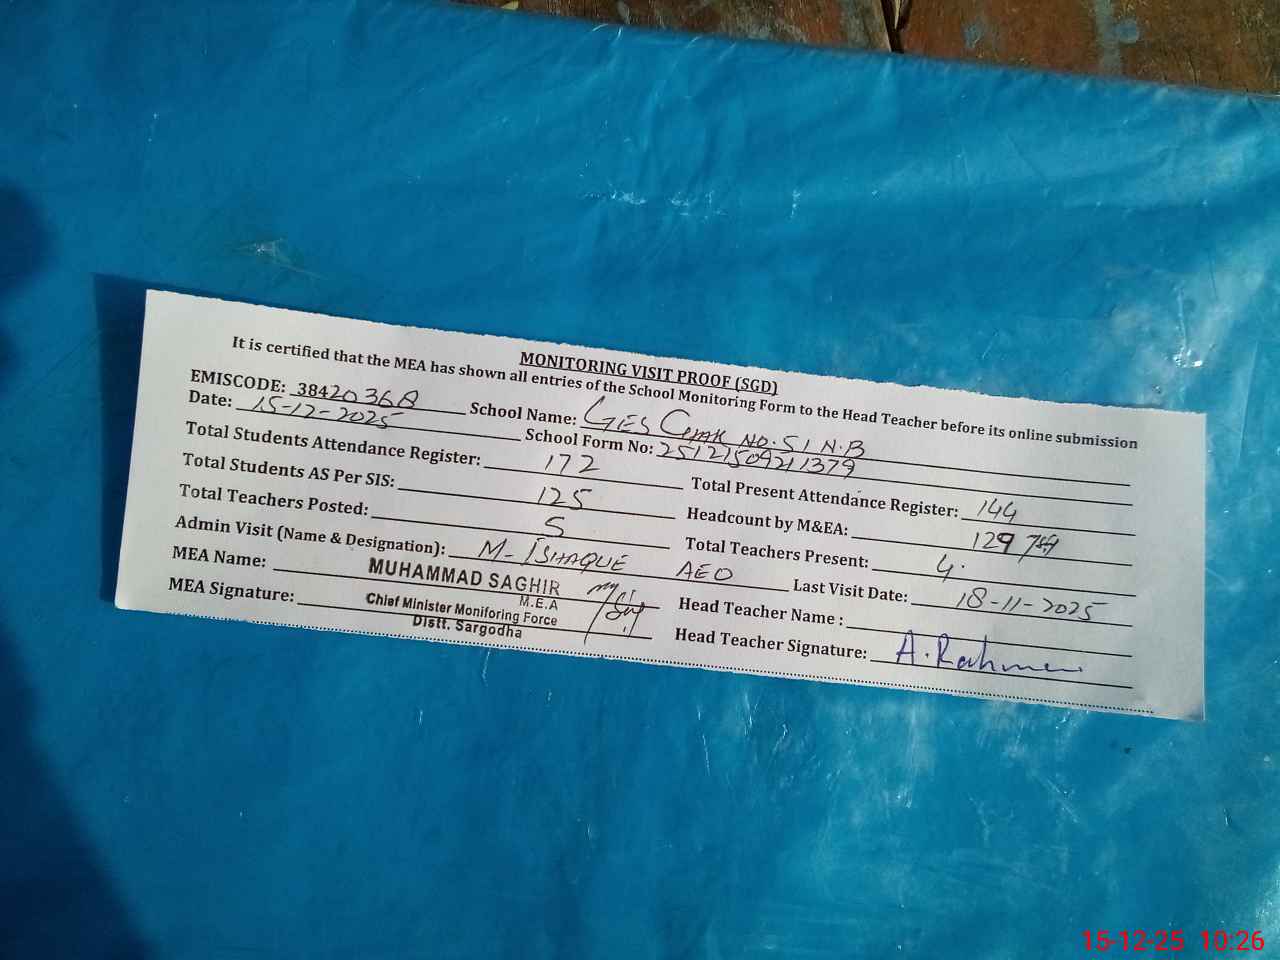 MONITORING VISIT PROOF (SGD)
It is certified that the MEA has shown all entries of the School Monitoring Form to the Head Teacher before its online submission
EMISCODE: 38420368 School Name: GES Chak NO. 51 N.B
Date: 15-12-2025 School Form No: 25121509211379
Total Students Attendance Register: 172 Total Present Attendance Register: 144
Total Students AS Per SIS: 125 Headcount by M&EA: 129
Total Teachers Posted: 5 Total Teachers Present: 4.
Admin Visit (Name & Designation): M- ISHAQUE AEO Last Visit Date: 18-11-2025
MEA Name: MUHAMMAD SAGHIR Head Teacher Name :
M.E.A
MEA Signature: Chief Minister Moniforing Force Head Teacher Signature: A. Rahman
Distt. Sargodha
15-12-25 10:26